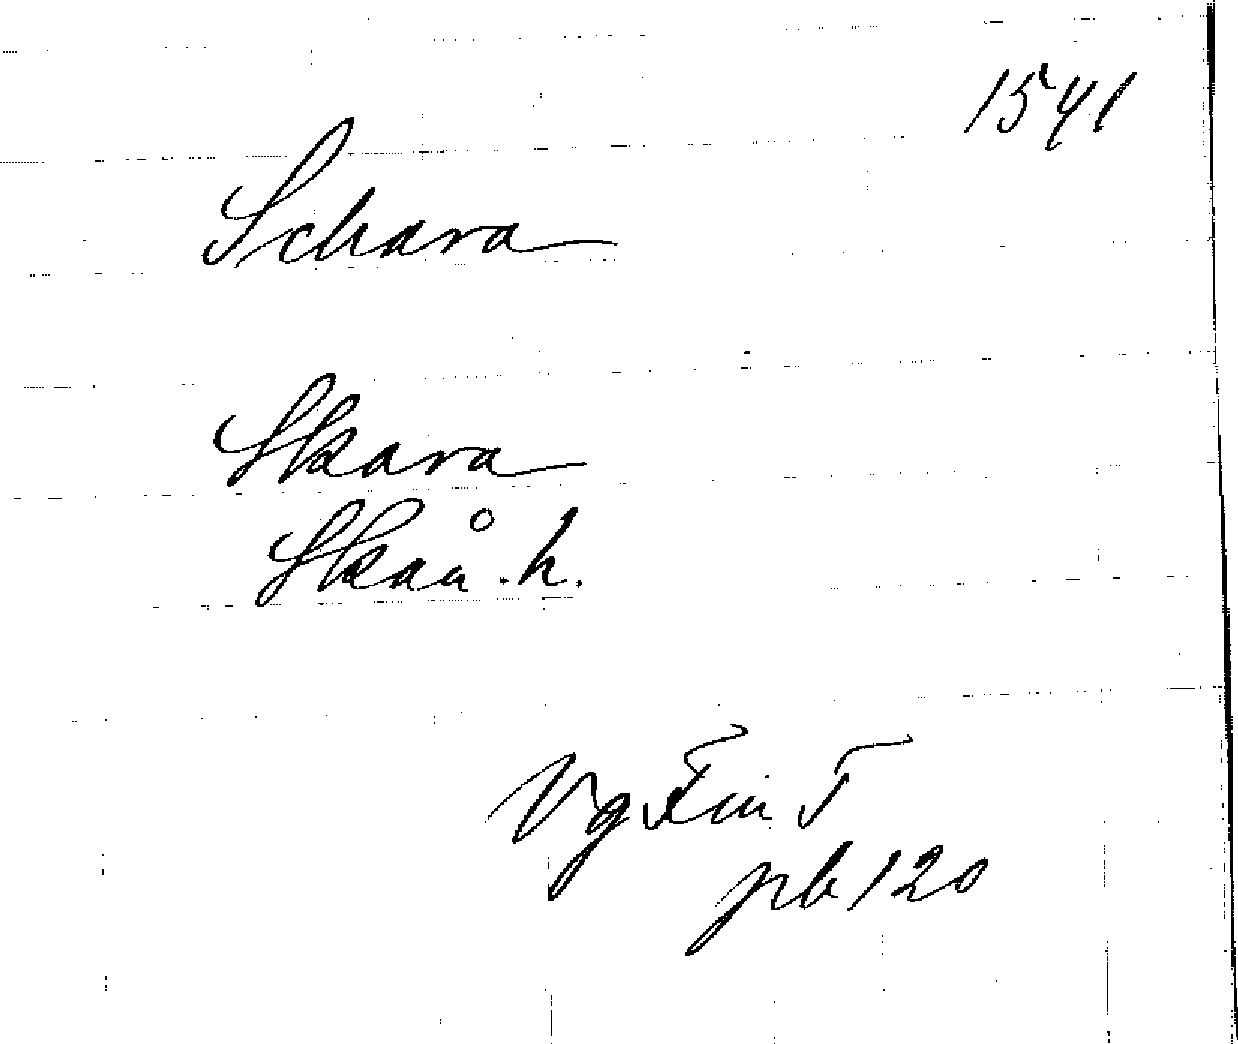 1541
Schara
Skara
Skaå.h.
Vg Fin T
pb 120